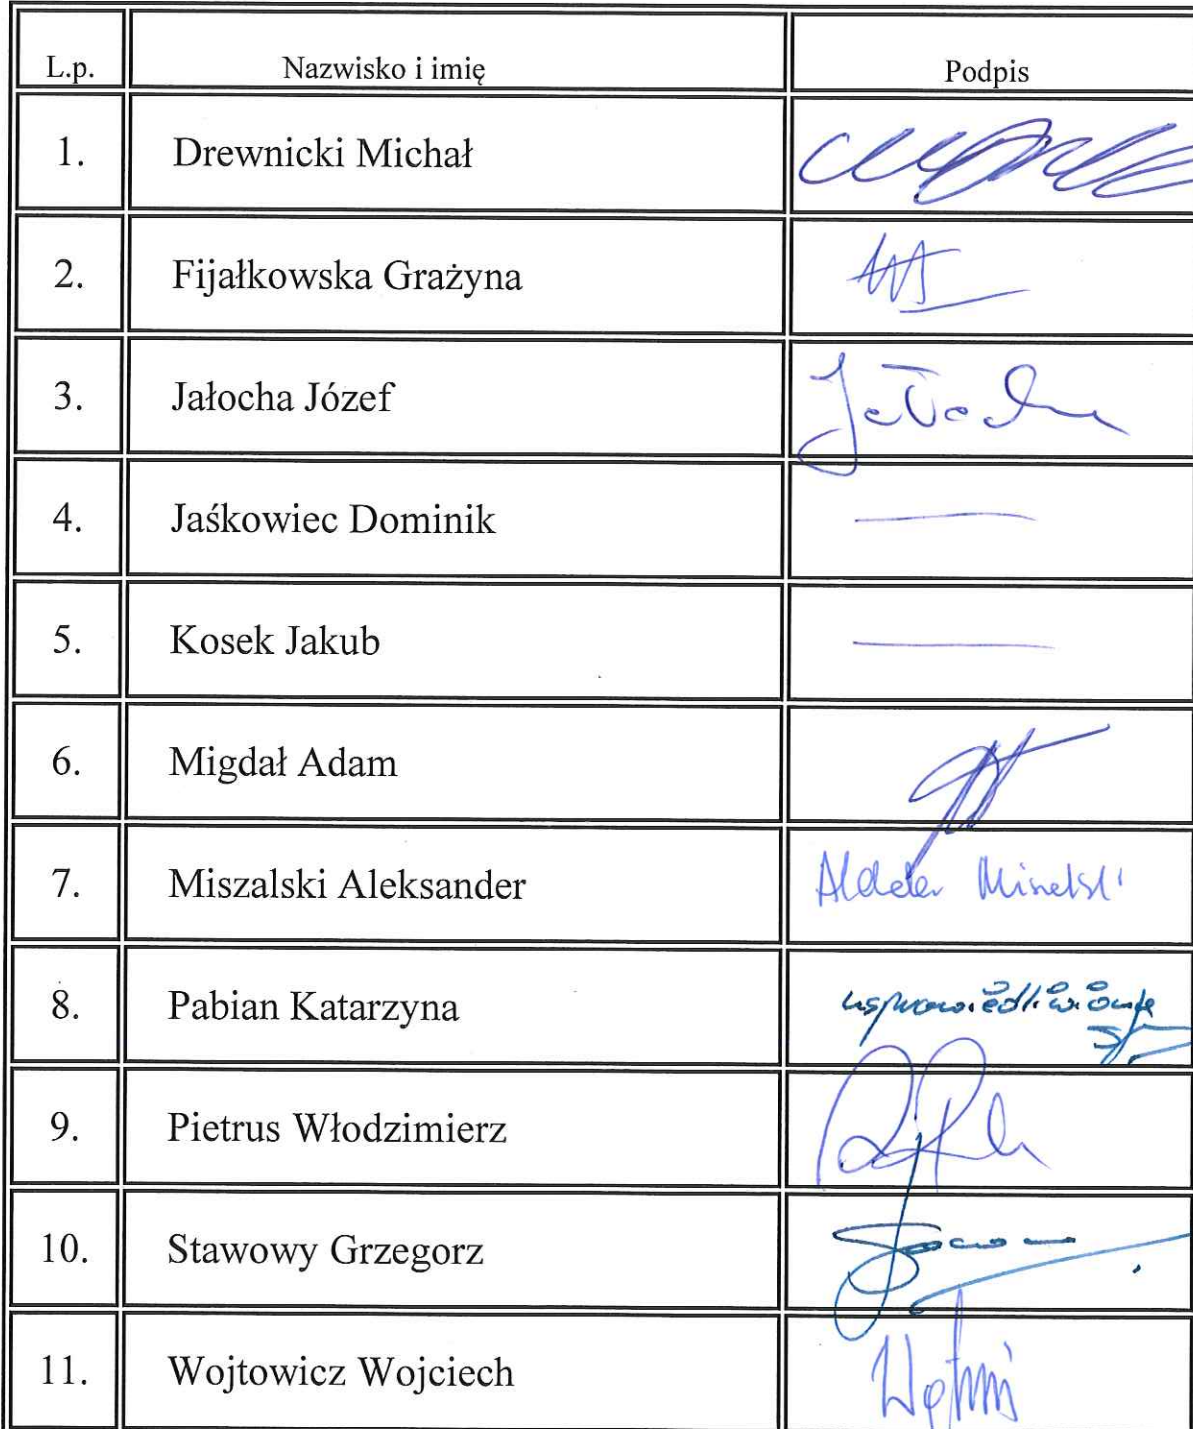 L.p. Nazwisko i imię Podpis
1. Drewnicki Michał
2. Fijałkowska Grażyna
3. Jałocha Józef Jałocha
4. Jaśkowiec Dominik —
5. Kosek Jakub —
6. Migdał Adam
7. Miszalski Aleksander
8. Pabian Katarzyna usprawiedliwiona
9. Pietrus Włodzimierz
10. Stawowy Grzegorz
11. Wojtowicz Wojciech